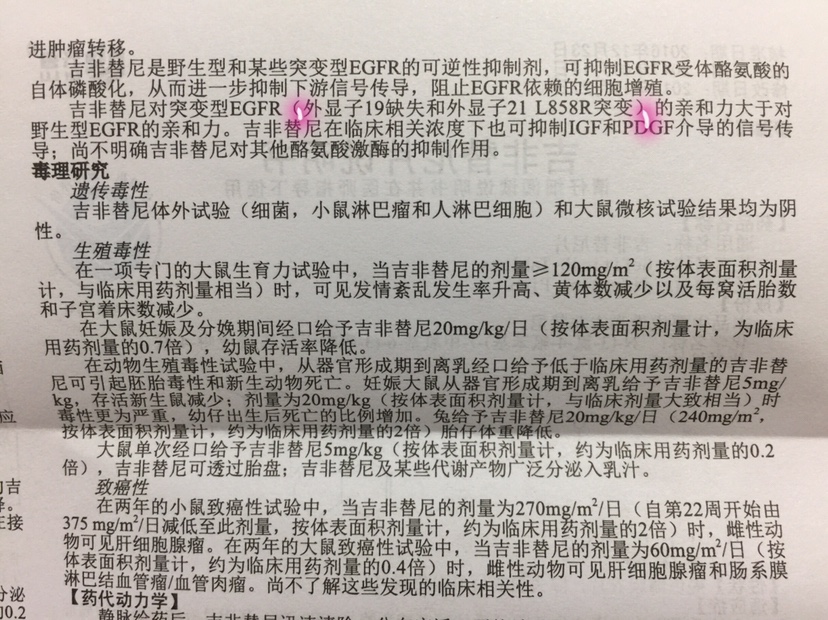 进肿瘤转移。
吉非替尼是野生型和某些突变型EGFR的可逆性抑制剂，可抑制EGFR受体酪氨酸的
自体磷酸化，从而进一步抑制下游信号传导，阻止EGFR依赖的细胞增殖。
吉非替尼对突变型EGFR（外显子19缺失和外显子21 L858R突变）的亲和力大于对
野生型EGFR的亲和力。吉非替尼在临床相关浓度下也可抑制IGF和PDGF介导的信号传
导；尚不明确吉非替尼对其他酪氨酸激酶的抑制作用。
毒理研究
遗传毒性
吉非替尼体外试验（细菌，小鼠淋巴瘤和人淋巴细胞）和大鼠微核试验结果均为阴
性。
生殖毒性
在一项专门的大鼠生育力试验中，当吉非替尼的剂量≥120mg/m²（按体表面积剂量
计，与临床用药剂量相当）时，可见发情紊乱发生率升高、黄体数减少以及每窝活胎数
和子宫着床数减少。
在大鼠妊娠及分娩期间经口给予吉非替尼20mg/kg/日（按体表面积剂量计，为临床
用药剂量的0.7倍），幼鼠存活率降低。
在动物生殖毒性试验中，从器官形成期到离乳经口给予低于临床用药剂量的吉非替
尼可引起胚胎毒性和新生动物死亡。妊娠大鼠从器官形成期到离乳给予吉非替尼5mg/
kg，存活新生鼠减少；剂量为20mg/kg（按体表面积剂量计，与临床剂量大致相当）时
毒性更为严重，幼仔出生后死亡的比例增加。兔给予吉非替尼20mg/kg/日（240mg/m²，
按体表面积剂量计，约为临床用药剂量的2倍）胎仔体重降低。
大鼠单次经口给予吉非替尼5mg/kg（按体表面积剂量计，约为临床用药剂量的0.2
倍），吉非替尼可透过胎盘；吉非替尼及某些代谢产物广泛分泌入乳汁。
致癌性
在两年的小鼠致癌性试验中，当吉非替尼的剂量为270mg/m²/日（自第22周开始由
375 mg/m²/日减低至此剂量，按体表面积剂量计，约为临床用药剂量的2倍）时，雌性动
物可见肝细胞腺瘤。在两年的大鼠致癌性试验中，当吉非替尼的剂量为60mg/m²/日（按
体表面积剂量计，约为临床用药剂量的0.4倍）时，雌性动物可见肝细胞腺瘤和肠系膜
淋巴结血管瘤/血管肉瘤。尚不了解这些发现的临床相关性。
【药代动力学】
应
吉
接
分泌
0.2